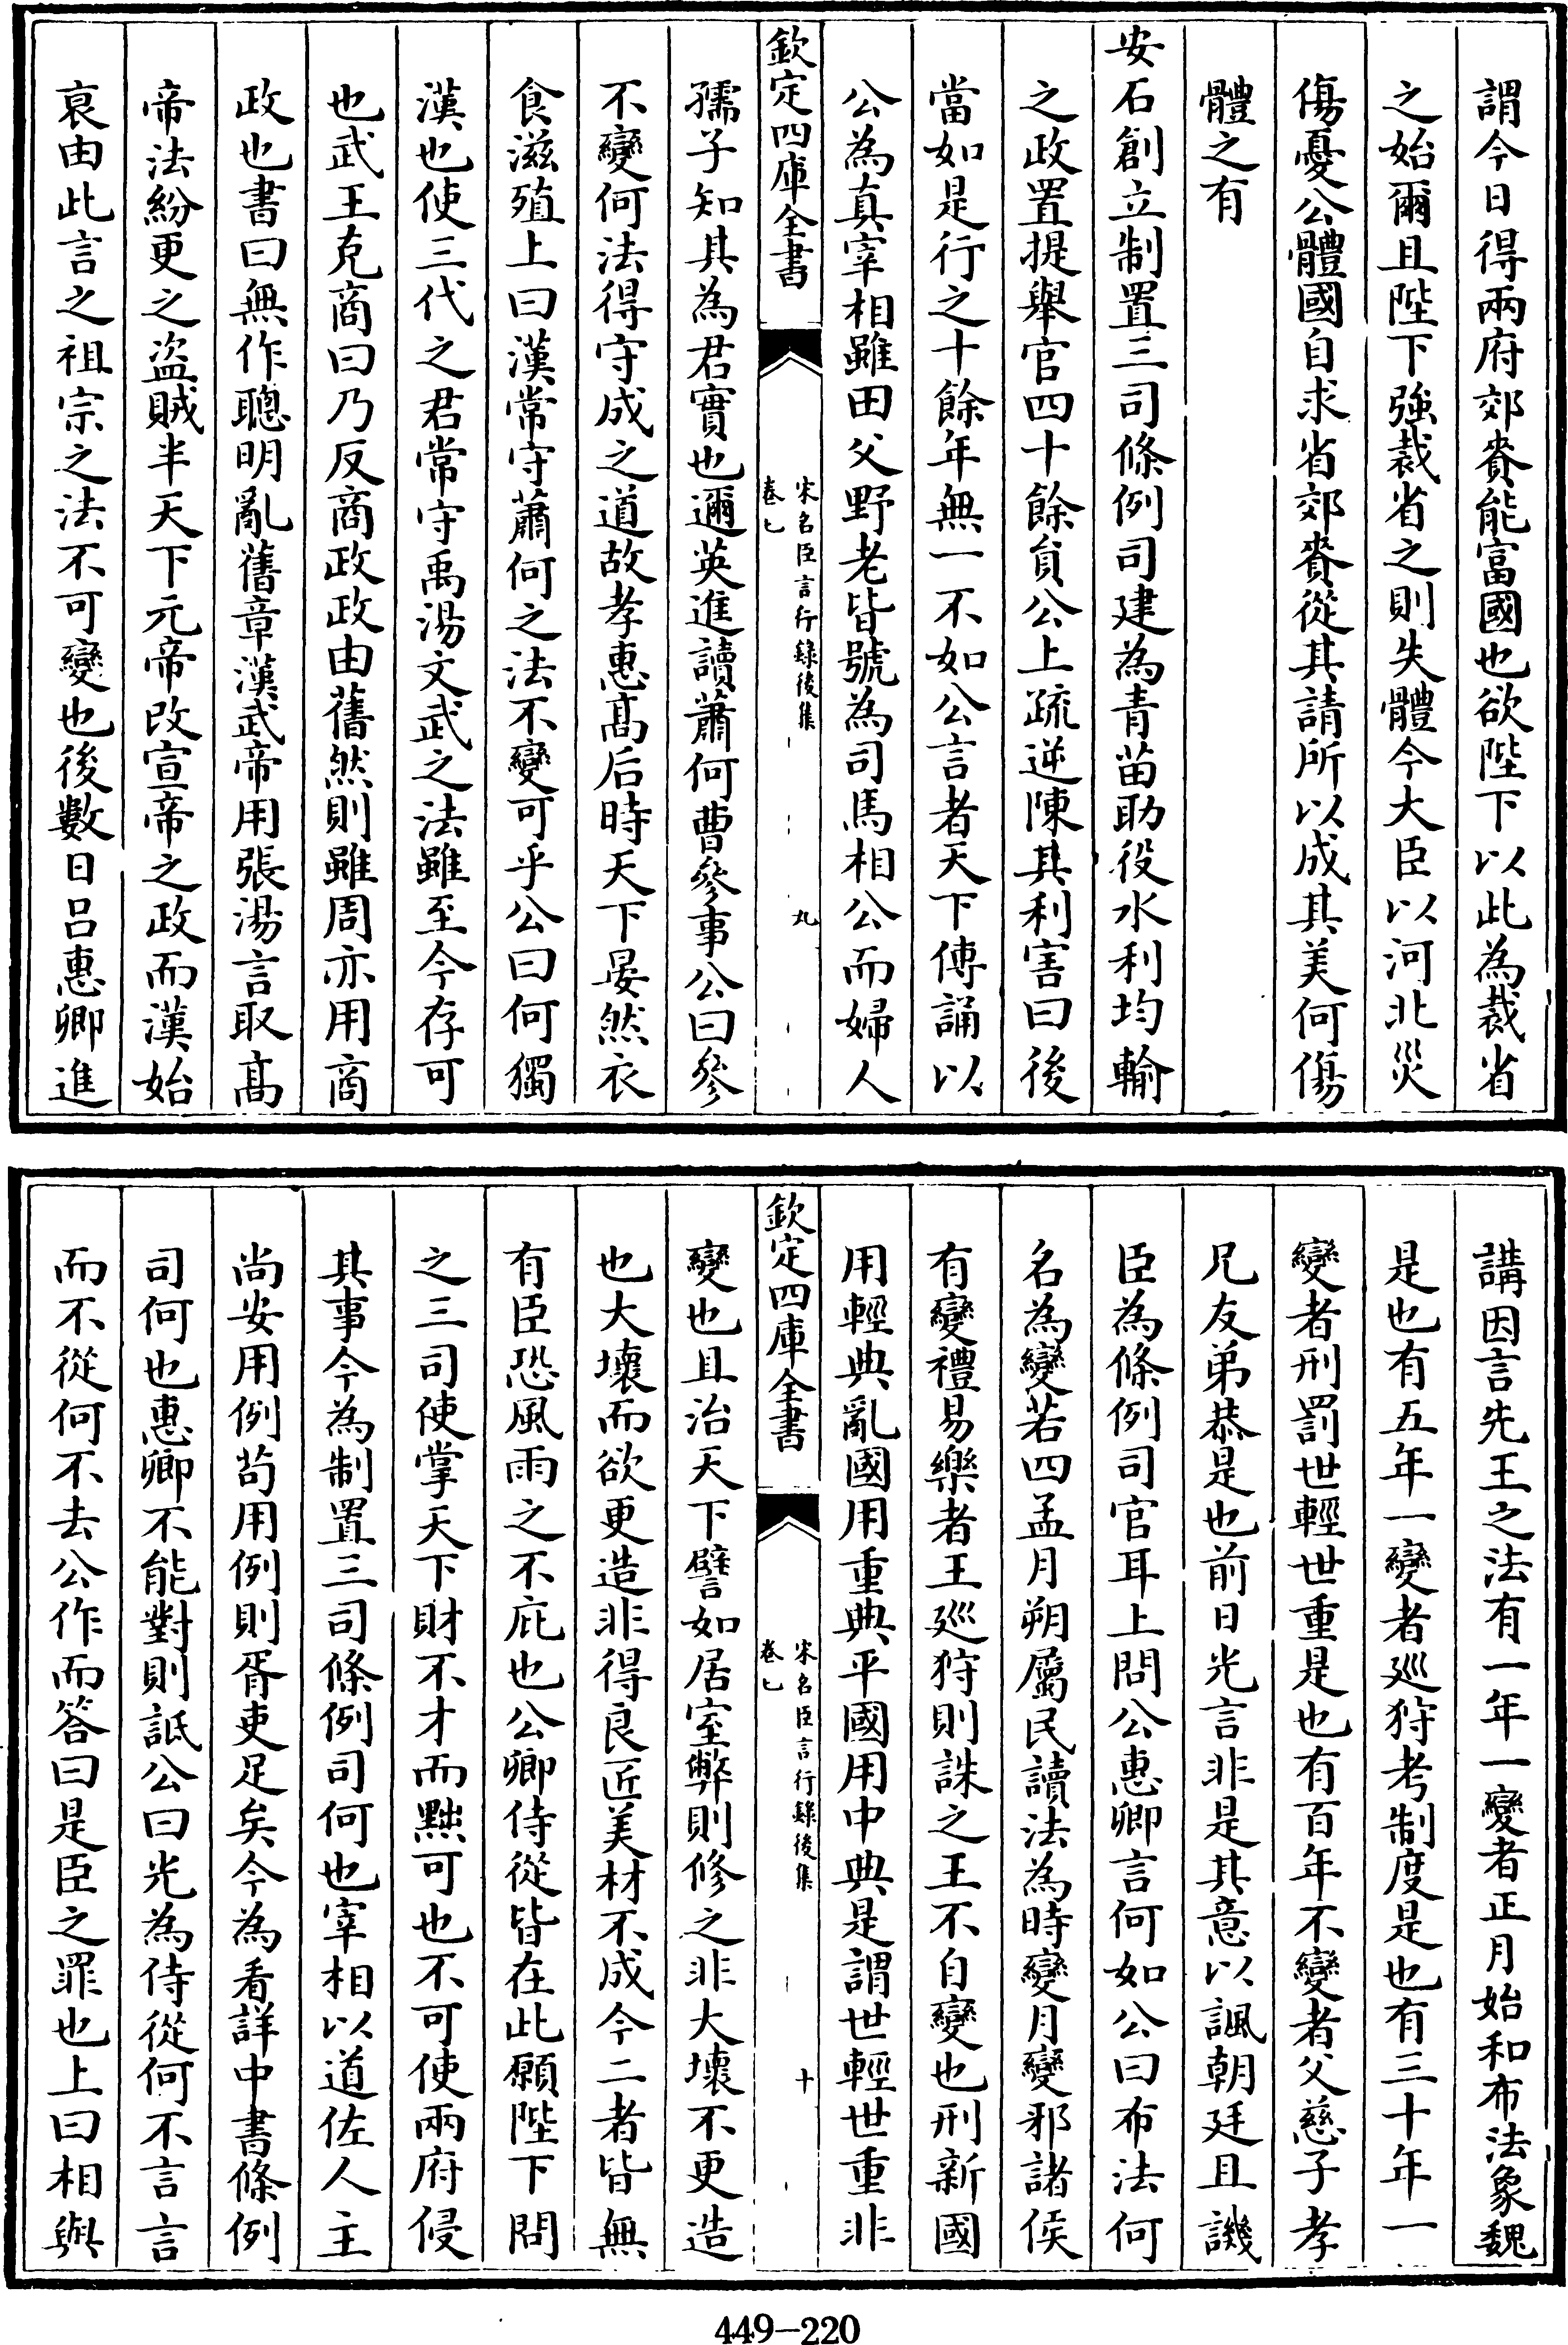 謂今日得兩府郊賚能富國也欲陛下以此為裁省
之始爾且陛下強裁省之則失體今大臣以河北災
傷憂公體國自求省郊賚從其請所以成其美何傷
體之有
安石創立制置三司條例司建為青苗助役水利均輸
之政置提舉官四十餘員公上疏逆陳其利害曰後
當如是行之十餘年無一不如公言者天下傳誦以
公為真宰相雖田父野老皆號為司馬相公而婦人
欽定四庫全書
宋名臣言行錄後集
卷七
九
孺子知其為君實也邇英進讀蕭何曹參事公曰參
不變何法得守成之道故孝惠髙后時天下晏然衣
食滋殖上曰漢常守蕭何之法不變可乎公曰何獨
漢也使三代之君常守禹湯文武之法雖至今存可
也武王克商曰乃反商政政由舊然則雖周亦用商
政也書曰無作聰明亂舊章漢武帝用張湯言取髙
帝法紛更之盜賊半天下元帝改宣帝之政而漢始
衰由此言之祖宗之法不可變也後數日吕惠卿進
講因言先王之法有一年一變者正月始和布法象魏
是也有五年一變者巡狩考制度是也有三十年一
變者刑罰世輕世重是也有百年不變者父慈子孝
兄友弟恭是也前日光言非是其意以諷朝廷且譏
臣為條例司官耳上問公惠卿言何如公曰布法何
名為變若四孟月朔屬民讀法為時變月變邪諸侯
有變禮易樂者王巡狩則誅之王不自變也刑新國
用輕典亂國用重典平國用中典是謂世輕世重非
欽定四庫全書
宋名臣言行錄後集
卷七
十
變也且治天下譬如居室弊則修之非大壞不更造
也大壞而欲更造非得良匠美材不成今二者皆無
有臣恐風雨之不庇也公卿侍從皆在此願陛下問
之三司使掌天下財不才而黜可也不可使兩府侵
其事今為制置三司條例司何也宰相以道佐人主
尚安用例苟用例則胥吏足矣今為看詳中書條例
司何也惠卿不能對則詆公曰光為侍從何不言言
而不從何不去公作而答曰是臣之罪也上曰相與
449-220